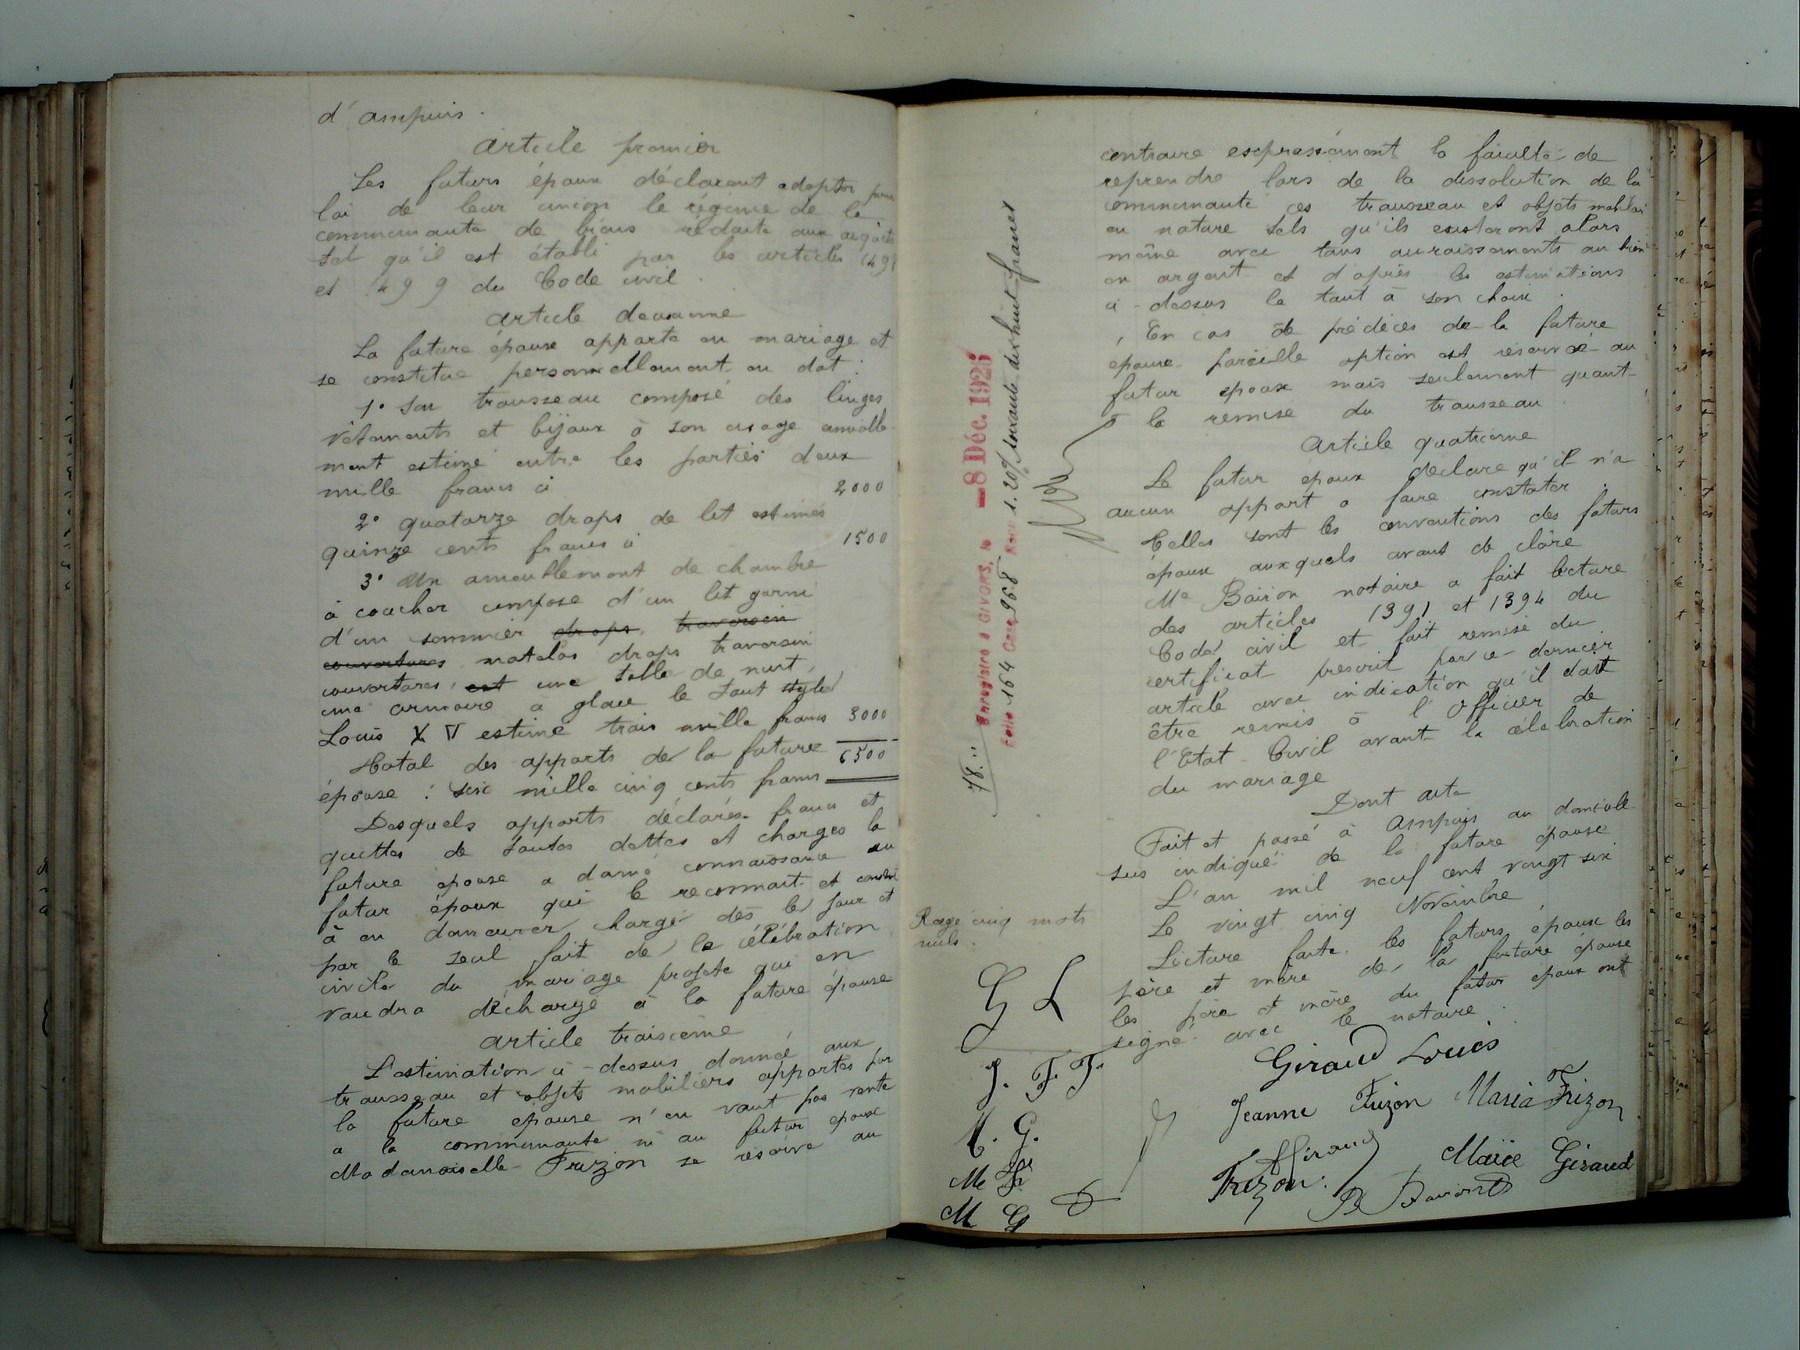 d'ampuis.
Article premier
Les futurs époux déclarent adopter pour
loi de leur union le régime de la
communauté de biens réduite aux acquêts
tel qu'il est établi par les articles 1498
et 1499 du Code civil.
Article deuxieme
La future épouse apporte en mariage et
se constitue personnellement en dot :
1° Son trousseau composé des linges
vêtements et bijoux à son usage amiable
ment estimé entre les parties deux
mille francs ci 2000
2° quatorze draps de lit estimés
quinze cents francs ci 1500
3° Un ameublement de chambre
à coucher composé d'un lit garni
d'un sommier draps, traversin
couvertures matelas draps traversin
couvertures, est une table de nuit,
une armoire a glace le tout style
Louis X V estimé trois mille francs 3000
Total des apports de la future 6500
épouse : six mille cinq cents francs
Desquels apports déclarés francs et
quittes de toutes dettes et charges la
future épouse a donné connaissance au
futur époux qui le reconnait et consent
à en demeurer chargé dès le jour et
par le seul fait de la célébration
civile du mariage projeté qui en
vaudra décharge à la future épouse
Article troisième
L'estimation ci-dessus donnée aux
trousseau et objets mobiliers apportés par
la future épouse n'en vaut pas vente
a la communauté ni au futur époux
Mademoiselle Frizon se réserve au
contraire expressément la faculté de
reprendre lors de la dissolution de la
communauté ces trousseau et objets mobiliers
en nature tels qu'ils existeront alors
même avec tous accroissements ou bien
en argent et d'après les estimations
ci-dessus le tout à son choix.
En cas de prédécès de la future
épouse pareille option est réservée au
futur époux mais seulement quant
à la remise du trousseau.
Article quatrieme
Le futur époux déclare qu'il n'a
aucun apport a faire constater
Telles sont les conventions des futurs
époux auxquels avant de clore
Me Bairon notaire a fait lecture
des articles 1391 et 1394 du
Code civil et fait remise du
certificat prescrit par ce dernier
article avec indication qu'il doit
être remis à l'Officier de
l'Etat Civil avant la célébration
du mariage
Dont acte
Fait et passé à Ampuis au domicile
sus indiqué de la future épouse
L'an mil neuf cent vingt six
Le vingt cinq Novembre
Lecture faite les futurs époux les
père et mère de la future épouse
les père et mère du futur époux ont
signé avec le notaire.
Giraud Louis
Jeanne Frizon Maria Frizon
Giraud
Frizon Marie Giraud
Enregistré à GIVORS, le 8 Déc. 1926
Folio 164 Case 968 Reçu 1.20% soixante dix huit francs
78."
Rayé cinq mots
nuls.
G L
J. F. F.
M. G.
M Fr
M G